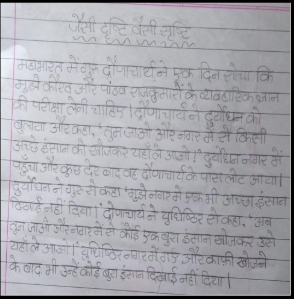 जैसी दृष्टि वैसी सृष्टि
महाभारत में गुरु द्रोणाचार्य ने एक दिन सोचा कि
मुझे कौरव और पांडव राजकुमारों के व्यवहारिक ज्ञान
की परीक्षा लेनी चाहिए। द्रोणाचार्य ने दुर्योधन को
बुलाया और कहा, "तुम जाओ और नगर में से किसी
अच्छे इंसान को खोजकर यहाँ ले आओ।" दुर्योधन नगर में
पहुँचा और कुछ देर बाद वह द्रोणाचार्य के पास लौट आया।
दुर्योधन ने गुरु से कहा "मुझे नगर में एक भी अच्छा इंसान
दिखाई नहीं दिया। द्रोणाचार्य ने युधिष्ठिर से कहा, "अब
तुम जाओ और नगर में से कोई एक बुरा इंसान खोजकर उसे
यहाँ ले आओ।" युधिष्ठिर नगर में गए और काफी खोजने
के बाद भी उन्हें कोई बुरा इंसान दिखाई नहीं दिया।